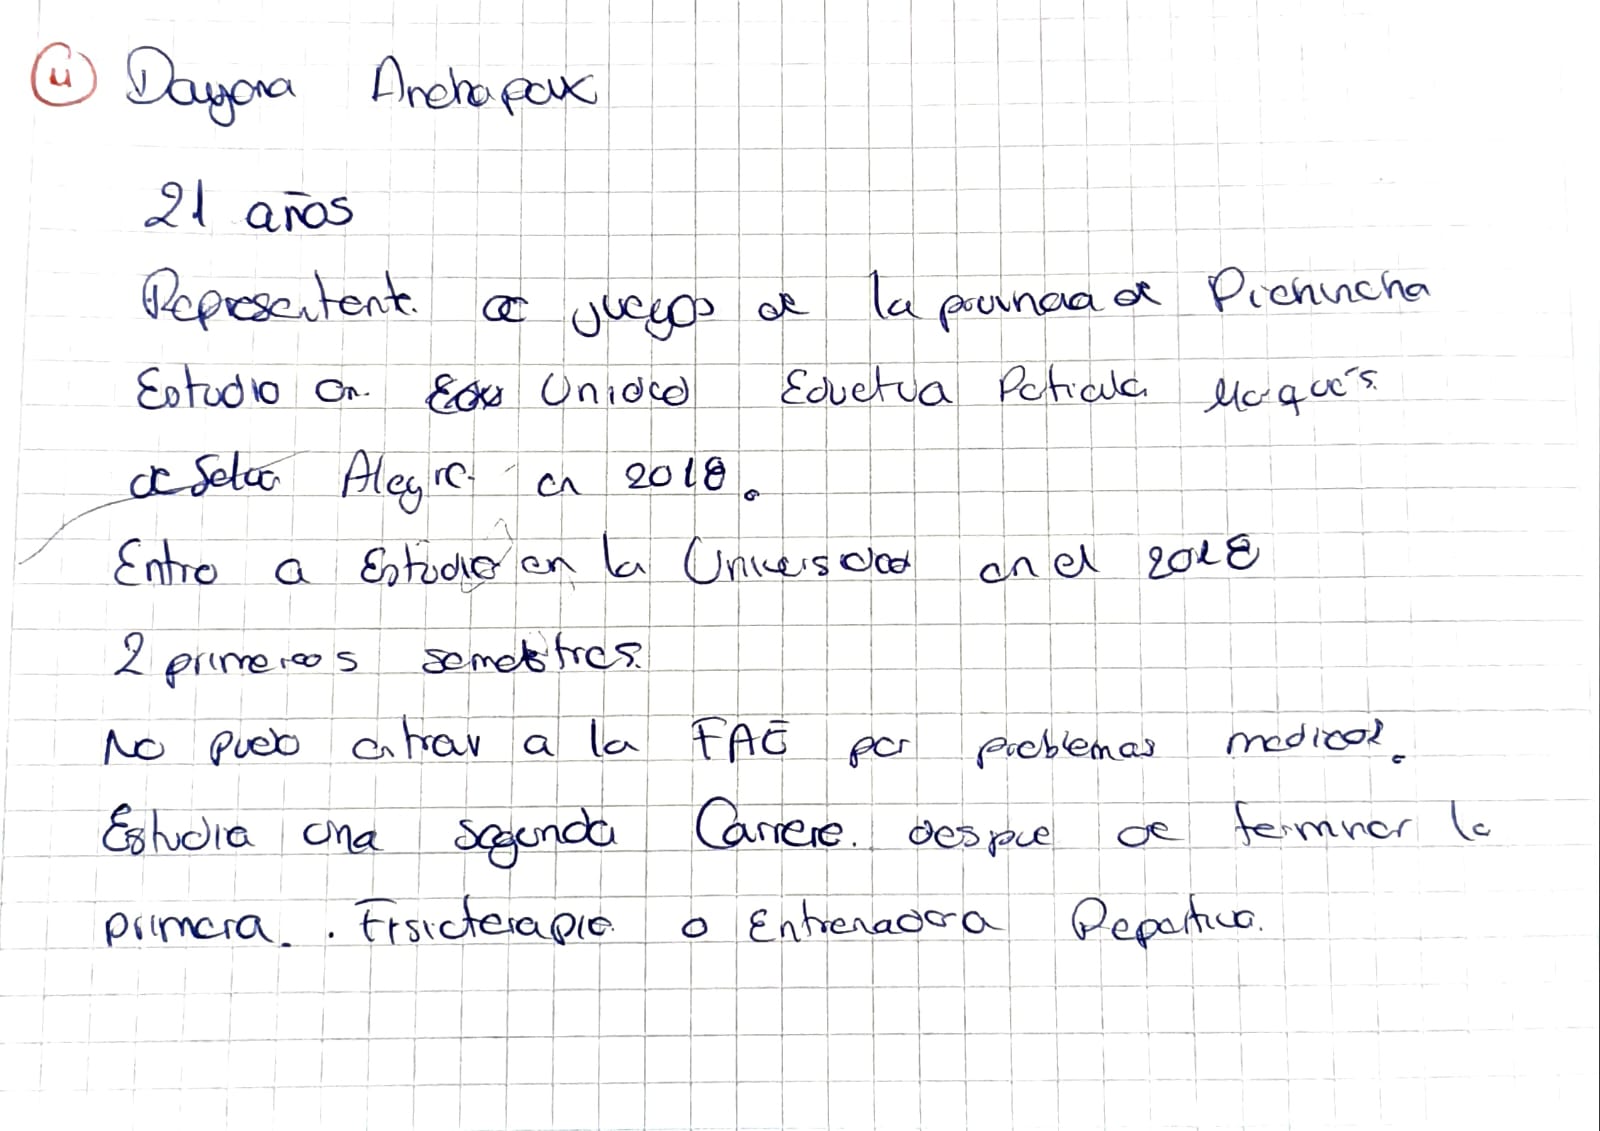 4 Dayana Anchapax
21 años
Representante de juegos de la provincia de Pichincha
Estudio en Unidad Eductva Patricia Marques
de Selva Alegre en 2018.
Entro a Estudio en la Universidad en el 2018
2 primeros semestres.
No pudo entrar a la FAE por problemas medicos.
Estudia una segunda Carrera despue de terminar la
primera. . Fisioterapia o Entrenadora Deportiva.